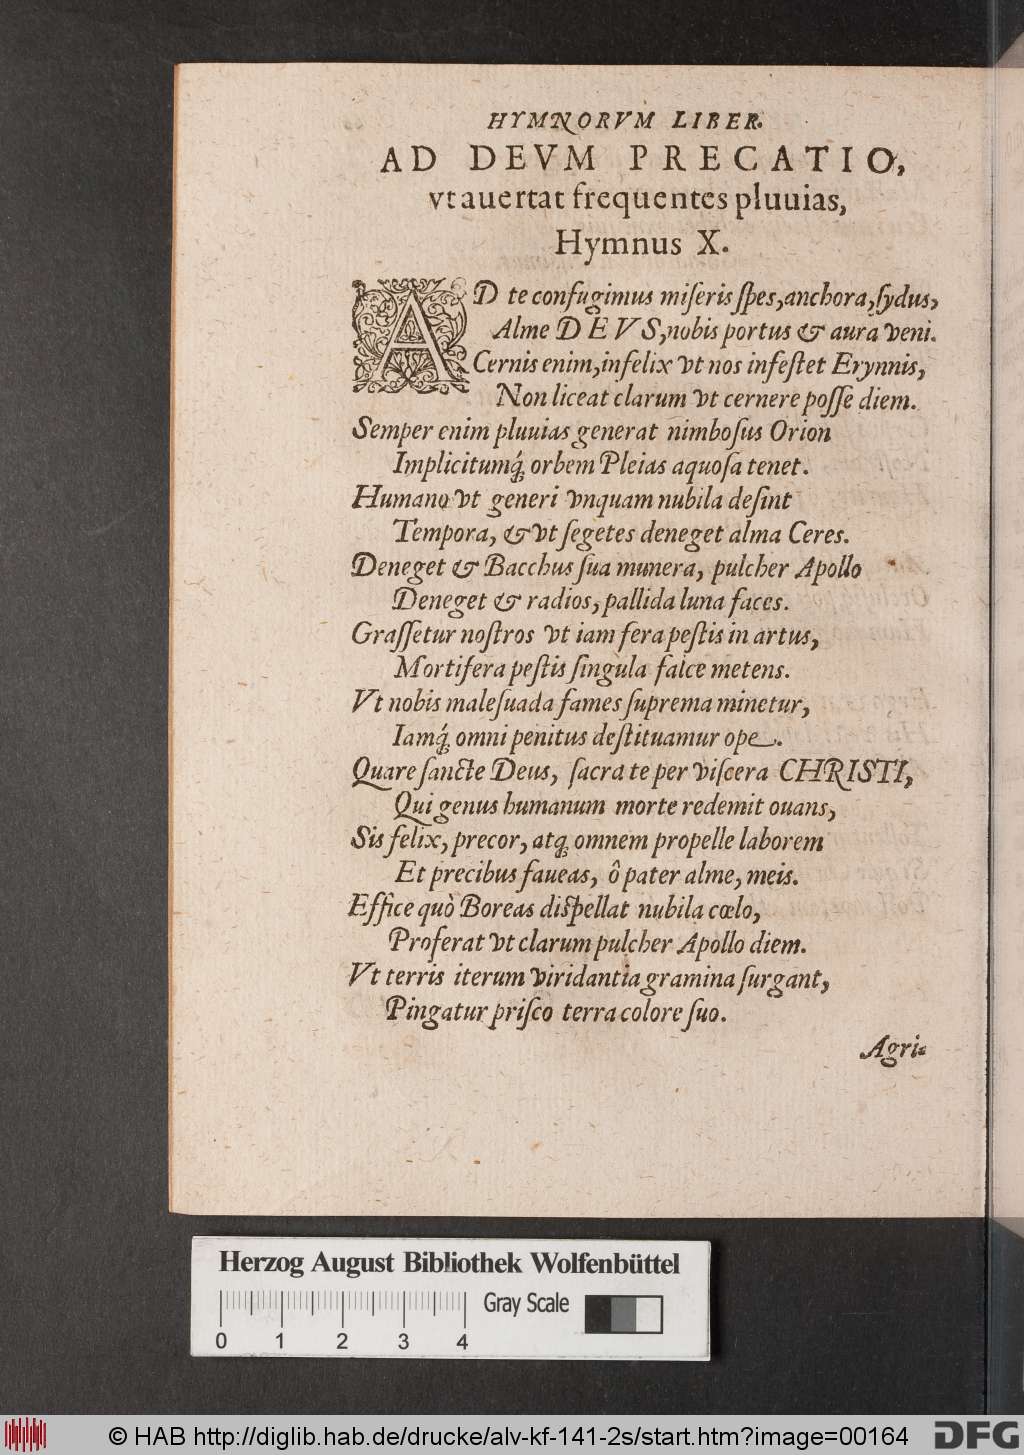 HYMNORVM LIBER.
AD DEVM PRECATIO,
vt auertat frequentes pluuias,
Hymnus X.
AD te confugimus miseris spes, anchora, sydus,
Alme DEVS, nobis portus & aura veni.
Cernis enim, infelix vt nos infestet Erynnis,
Non liceat clarum vt cernere posse diem.
Semper enim pluuias generat nimbosus Orion
Implicitumq́ꝫ orbem Pleias aquosa tenet.
Humano vt generi vnquam nubila desint
Tempora, & vt segetes deneget alma Ceres.
Deneget & Bacchus sua munera, pulcher Apollo
Deneget & radios, pallida luna faces.
Grassetur nostros vt iam fera pestis in artus,
Mortifera pestis singula falce metens.
Vt nobis malesuada fames suprema minetur,
Iamq́ꝫ omni penitus destituamur ope.
Quare sancte Deus, sacra te per viscera CHRISTI,
Qui genus humanum morte redemit ouans,
Sis felix, precor, atqꝫ omnem propelle laborem
Et precibus faueas, ô pater alme, meis.
Effice quò Boreas dispellat nubila cœlo,
Proferat vt clarum pulcher Apollo diem.
Vt terris iterum viridantia gramina surgant,
Pingatur prisco terra colore suo.
Agri-
Herzog August Bibliothek Wolfenbüttel
Gray Scale
0 1 2 3 4
© HAB http://diglib.hab.de/drucke/alv-kf-141-2s/start.htm?image=00164
DFG